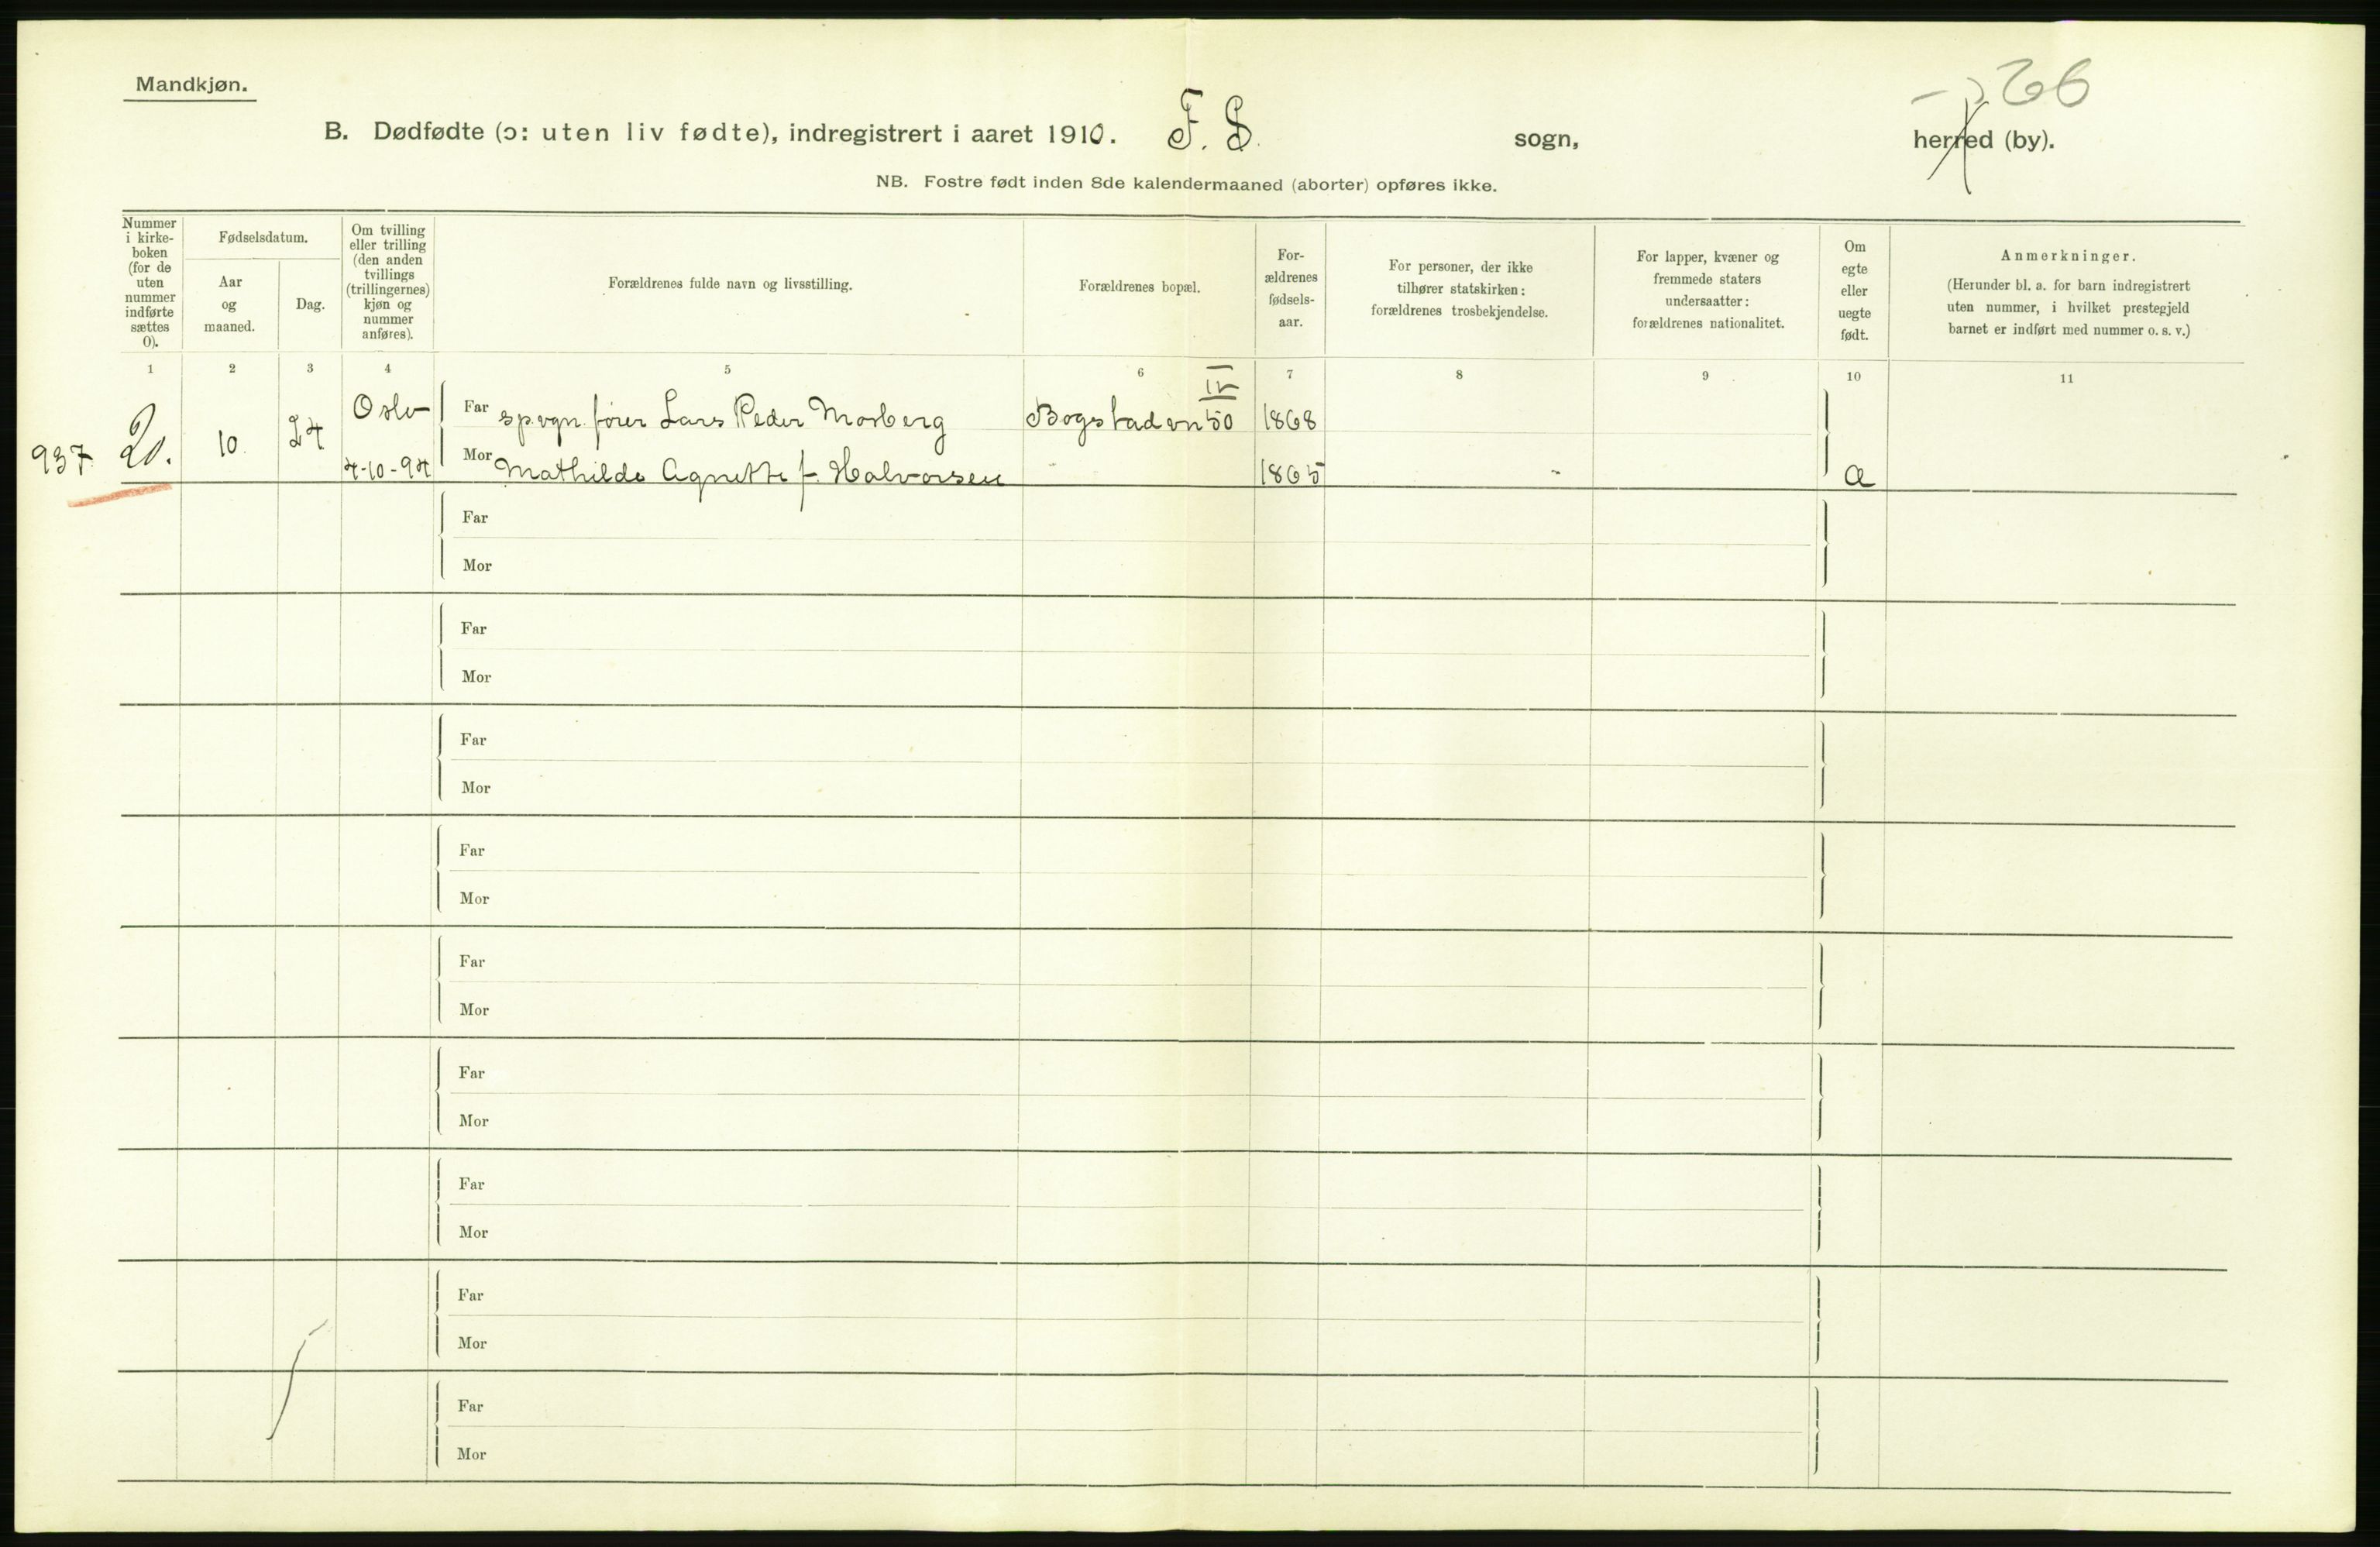 Mandkjøn.
B. Dødfødte (ɔ: uten liv fødte), indregistrert i aaret 1910. F. S. sogn, herred (by).
NB. Fostre født inden 8de kalendermaaned (aborter) opføres ikke.
Nummer
i kirke-
boken
(for de
uten
nummer
indførte
sættes
0).
Fødselsdatum.
Aar
og
maaned.
Dag.
Om tvilling
eller trilling
(den anden
tvillings
(trillingernes)
kjøn og
nummer
anføres).
Forældrenes fulde navn og livsstilling.
Forældrenes bopæl.
For-
ældrenes
fødsels-
aar.
For personer, der ikke
tilhører statskirken:
forældrenes trosbekjendelse.
For lapper, kvæner og
fremmede staters
undersaatter:
forældrenes nationalitet.
Om
egte
eller
uegte
født.
Anmerkninger.
(Herunder bl. a. for barn indregistrert
uten nummer, i hvilket prestegjeld
barnet er indført med nummer o. s. v.)
1 2 3 4 5 6 7 8 9 10 11
937. 20. 10. 24 Oslo Far sp.vgn. fører Lars Peder Morberg Bogstadvn 50 IV 1868
4-10-94 Mor Mathilde Agnette f. Halvorsen - 1865 - Æ
Far
Mor
Far
Mor
Far
Mor
Far
Mor
Far
Mor
Far
Mor
Far
Mor
Far
Mor
Far
Mor